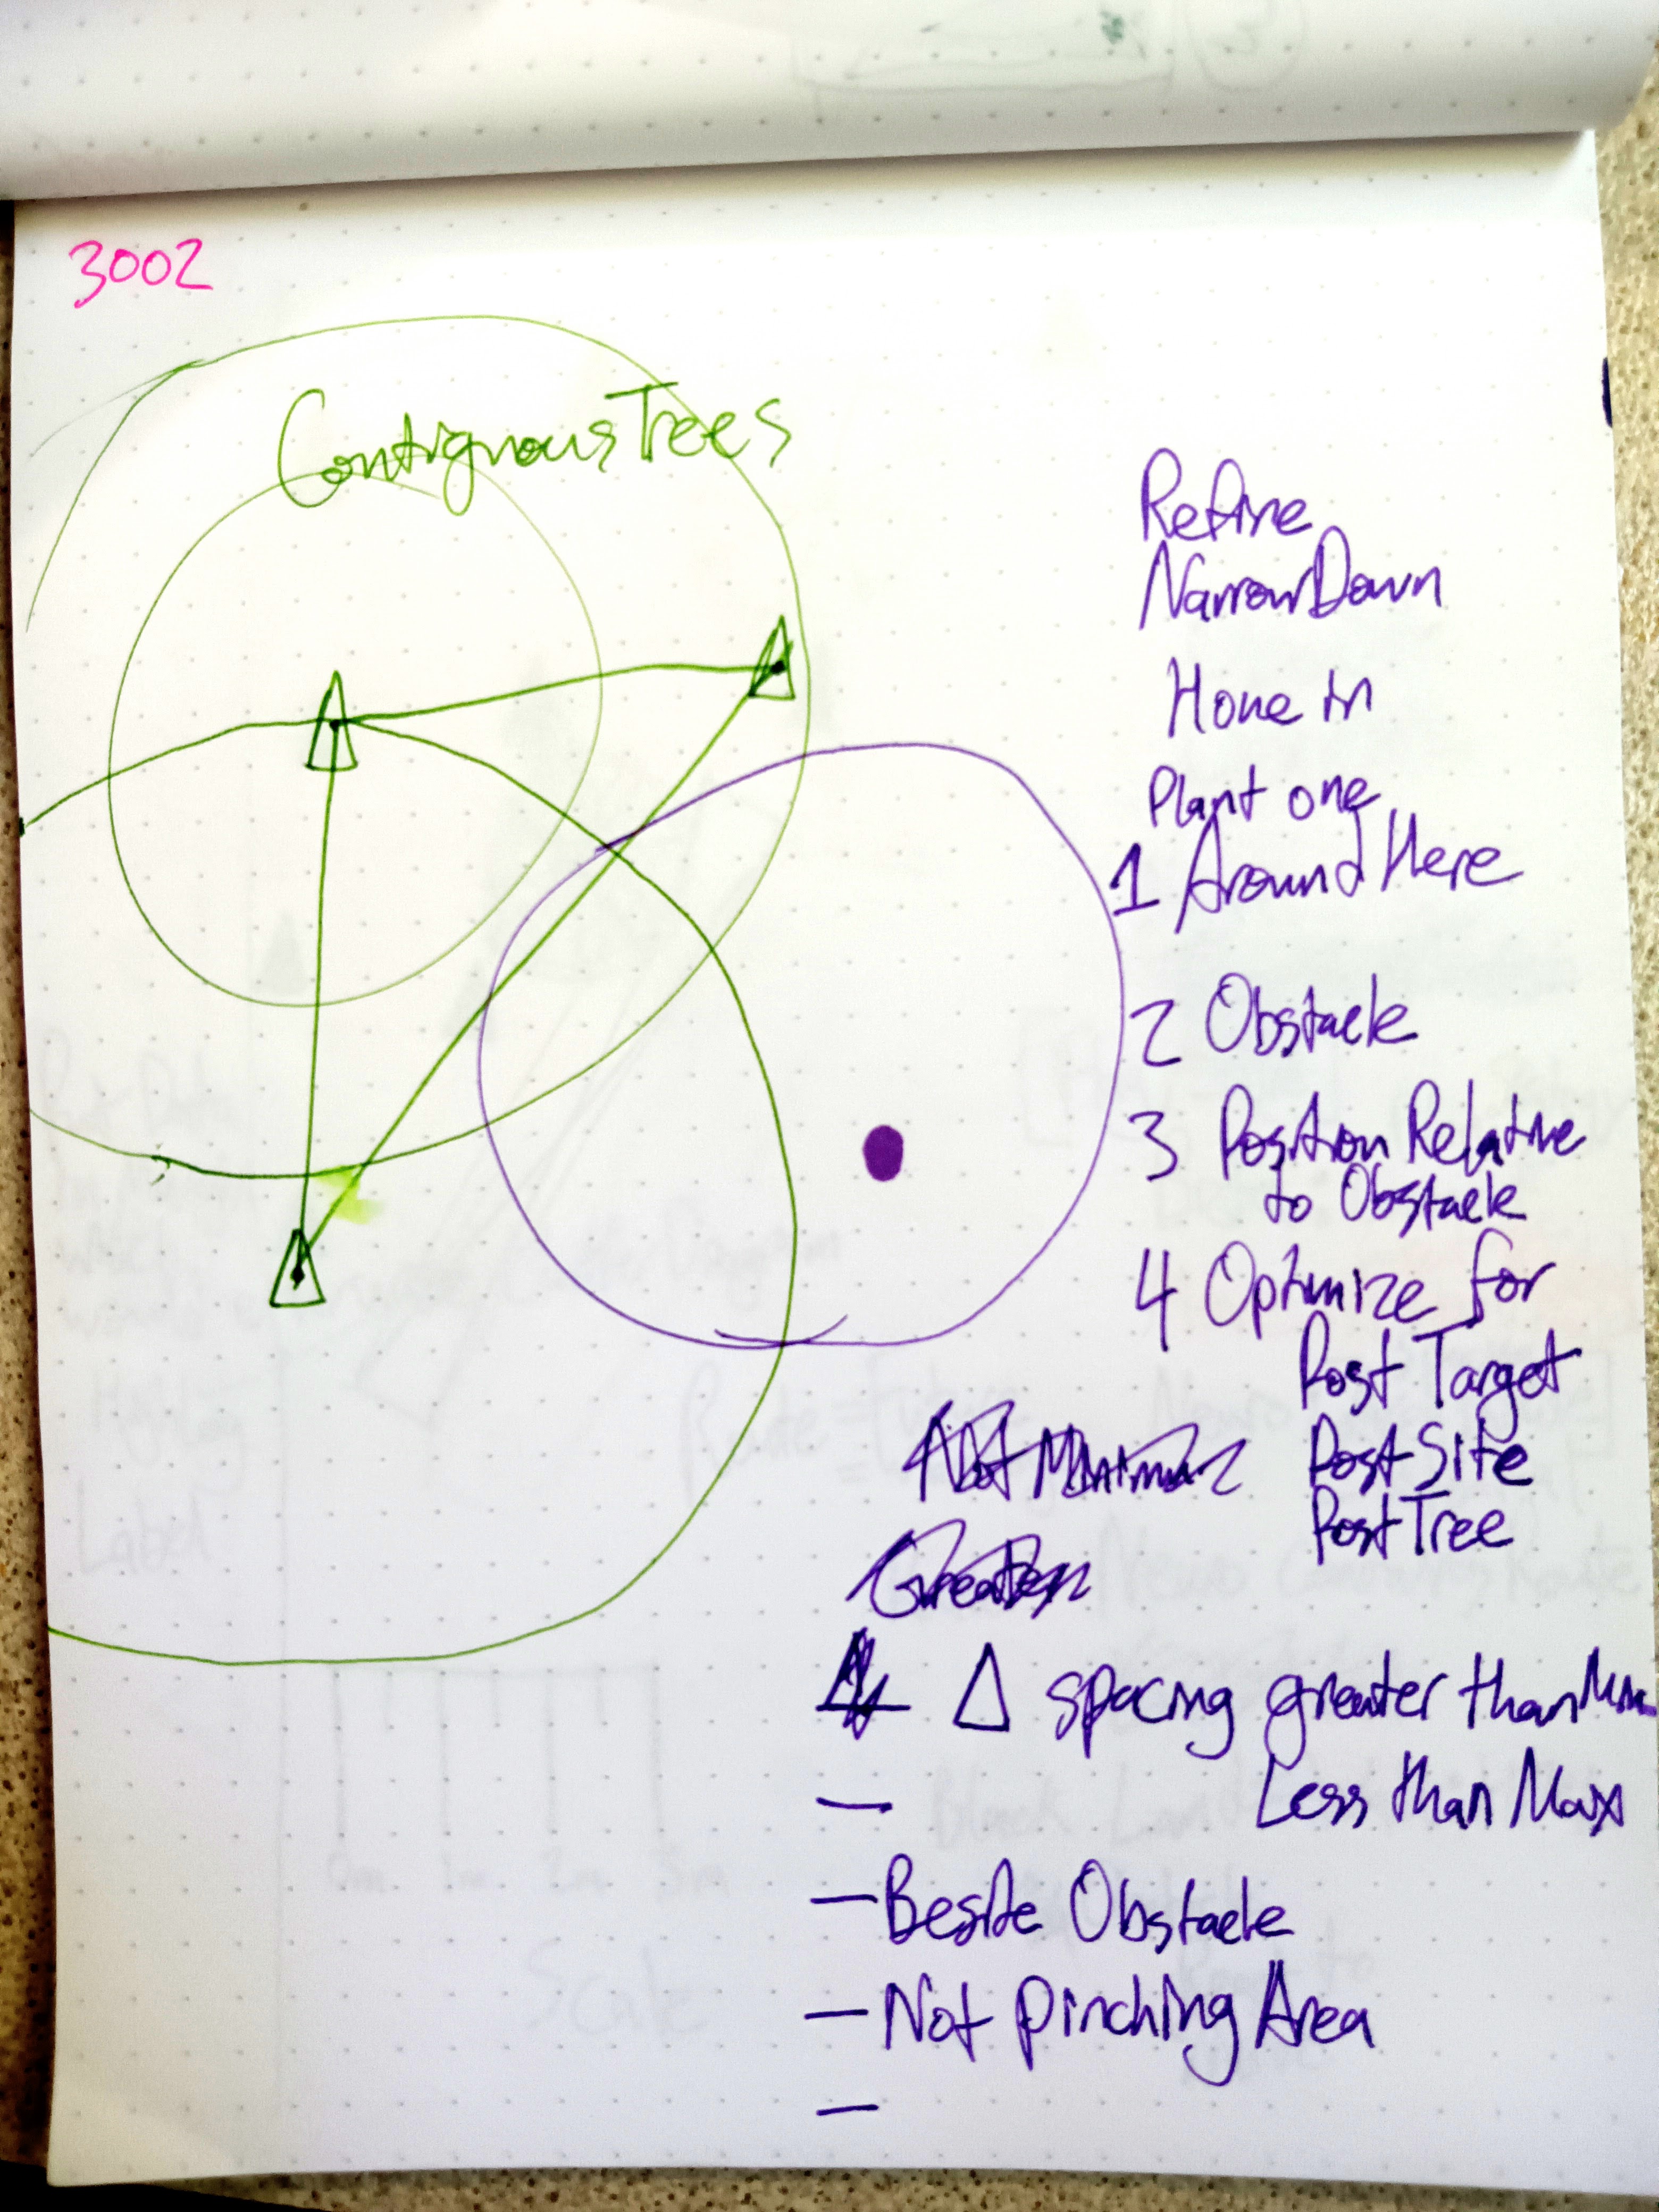 3002
Contiguous Trees
Refine
Narrow Down
Hone in
Plant one
1 Around Here
2 Obstacle
3 Position Relative
to Obstacle
4 Optimize for
Post Target
Not Minimum
Post Site
Post Tree
Greater
Δ spacing greater than Min
— Less than Max
— Beside Obstacle
— Not Pinching Area
—
Label
Scale
0m 1m 2m 3m